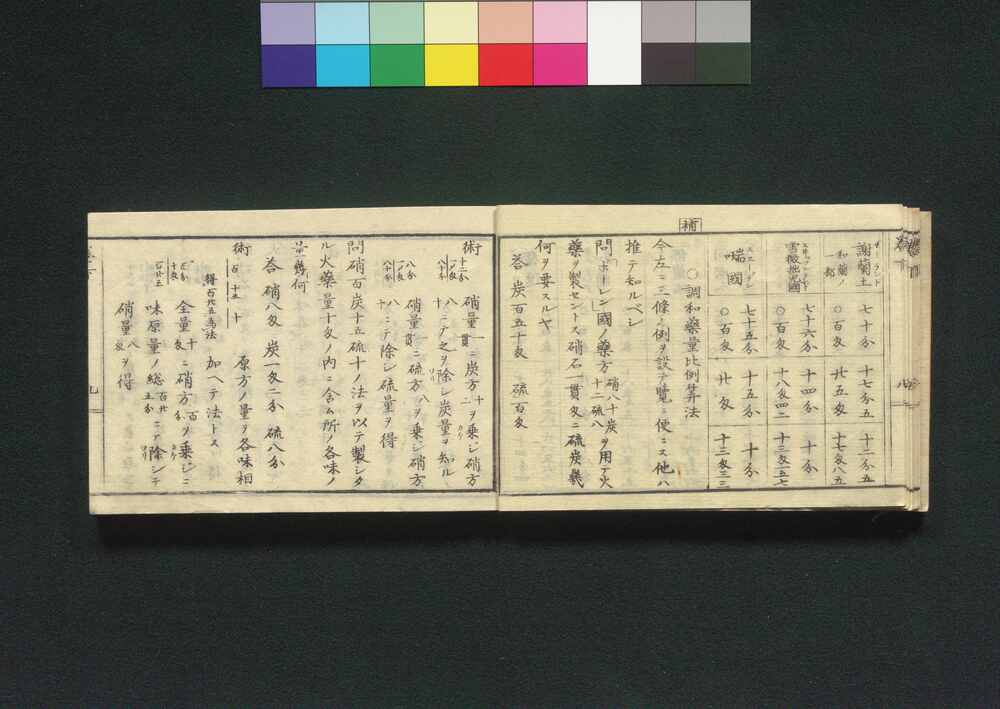 謝蘭土 七十分 十七分五 十二分五
和蘭ノ一部 ○百匁 廿五匁 十七匁八五
七十六分 十四分 十分
○百匁 十八匁四二 十三匁一五七
瑞國 七十五分 十五分 十分
○百匁 廿匁 十三匁三三
補
○調和藥量比例算法
今左ニ二條ノ例ヲ設テ覽ニ便ニス他ハ
推テ知ルベシ
問「ポーレン」國ノ藥方硝八十炭十二硫八ヲ用テ火
藥ヲ製セントス硝石一貫匁ニ硫炭幾
何ヲ要スルヤ
答 炭百五十匁 硫百匁
術 硝量一貫ニ炭方十二ヲ乗シ硝方
八十ニテ之ヲ除シ炭量ヲ知ル
硝量一貫ニ硫方八ヲ乗シ硝方
八十ニテ除シ硫量ヲ得
問硝百炭十五硫十ノ法ヲ以テ製シタ
ル火藥量十匁ノ内ニ含ム所ノ各味ノ
量幾何
答 硝八匁 炭一匁二分 硫八分
術 百 十五 十 原方ノ量ヲ各味相
得百廿五為法 加ヘテ法トス
全量十匁ニ硝方百分ヲ乗シニ
味原量ノ総百廿五分ニテ除シテ
硝量八匁ヲ得
九